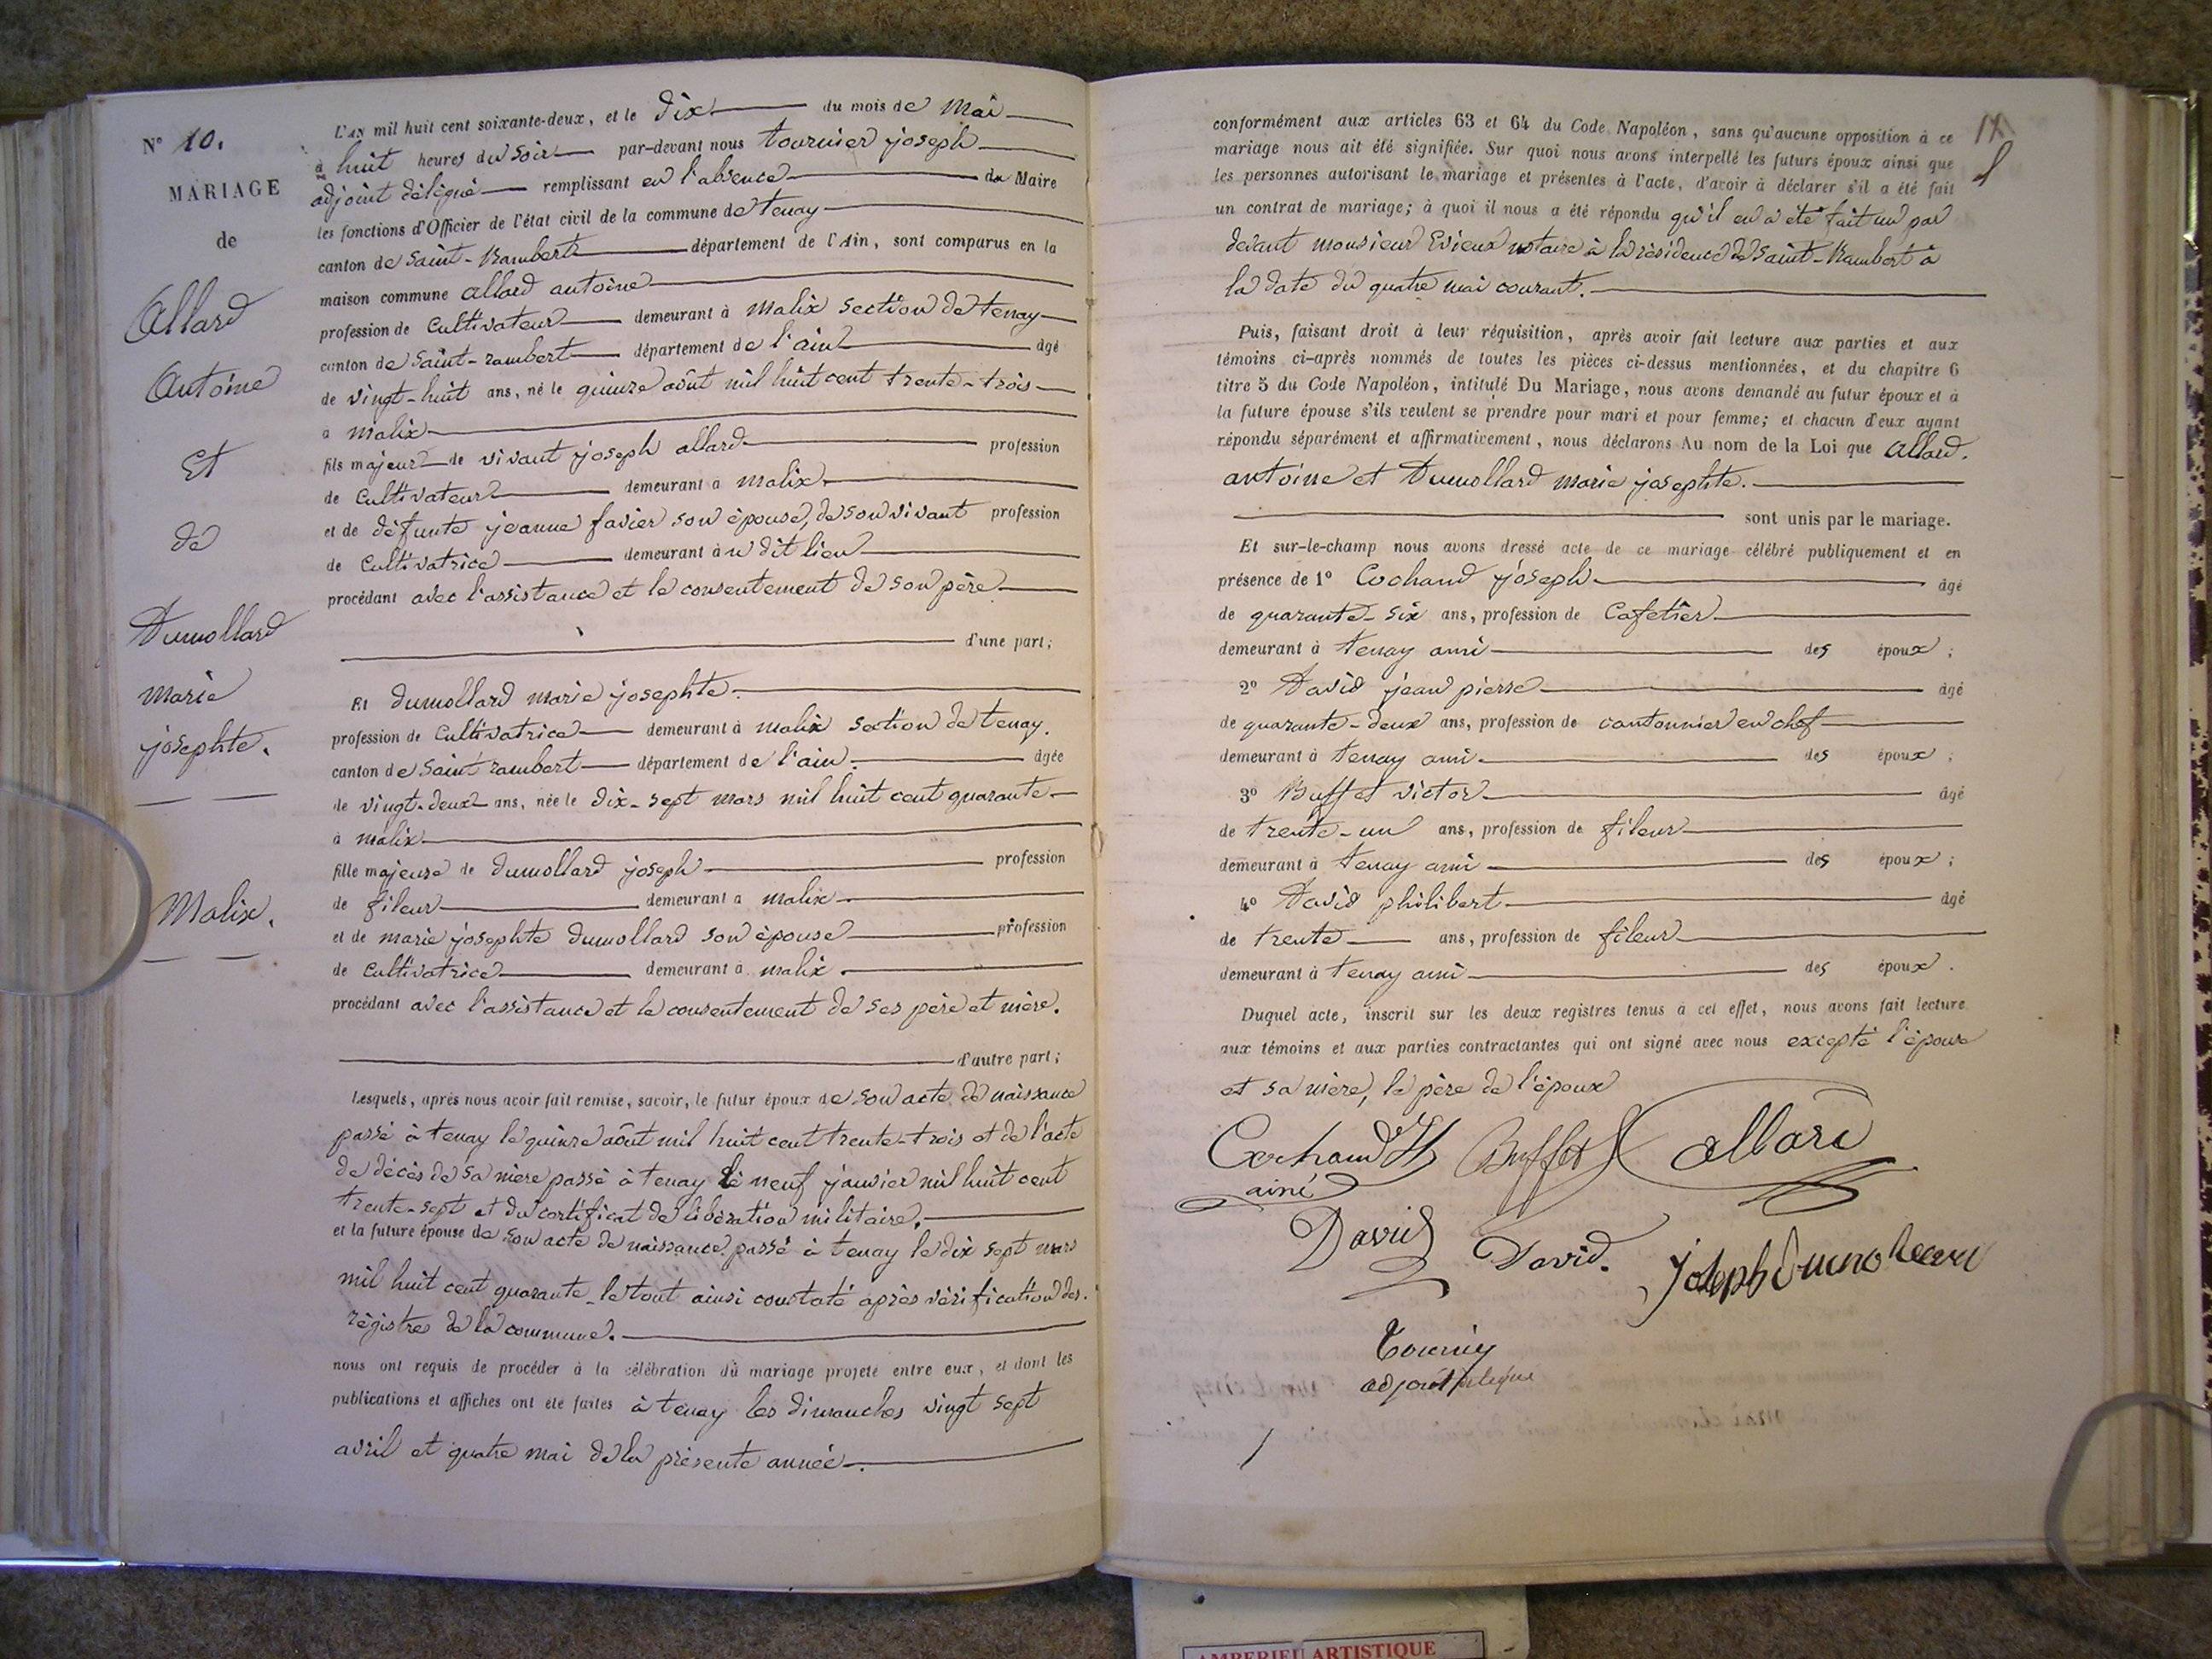 N° 10.
MARIAGE
de
Allard
Antoine
Et
de
Dumollard
Marie
josephte.
Malix.
L'AN mil huit cent soixante-deux, et le dix du mois de Mai
à huit heures du soir par-devant nous tournier joseph
adjoint délégué remplissant en l'absence du Maire
les fonctions d'Officier de l'état civil de la commune de tenay
canton de Saint-Rambert département de l'Ain, sont comparus en la
maison commune allard antoine
profession de Cultivateur demeurant à Malix section de tenay
canton de Saint-rambert département de l'ain âgé
de vingt-huit ans, né le quinze août mil huit cent trente-trois
à malix
fils majeur de vivant joseph allard profession
de Cultivateur demeurant à malix
et de défunte jeanne favier son épouse, de son vivant profession
de Cultivatrice demeurant à u dit lieu
procédant avec l'assistance et le consentement de son père
d'une part;
Et dumollard marie josephte.
profession de Cultivatrice demeurant à malix section de tenay.
canton de Saint rambert département de l'ain. âgée
de vingt-deux ans, née le dix-sept mars mil huit cent quarante
à malix
fille majeure de dumollard joseph profession
de fileur demeurant à malix
et de marie josephte dumollard son épouse profession
de Cultivatrice demeurant à malix.
procédant avec l'assistance et le consentement de ses père et mère.
d'autre part;
Lesquels, après nous avoir fait remise, savoir, le futur époux de son acte de naissance
passé à tenay le quinze août mil huit cent trente-trois et de l'acte
de décès de sa mère passé à tenay le neuf janvier mil huit cent
trente-sept et du certificat de libération militaire.
et la future épouse de son acte de naissance passé à tenay le dix sept mars
mil huit cent quarante_ le tout ainsi constaté après vérification des
régistres de la commune.
nous ont requis de procéder à la célébration du mariage projeté entre eux, et dont les
publications et affiches ont été faites à tenay les dimanches vingt sept
avril et quatre mai de la présente année.
conformément aux articles 63 et 64 du Code Napoléon, sans qu'aucune opposition à ce
mariage nous ait été signifiée. Sur quoi nous avons interpellé les futurs époux ainsi que
les personnes autorisant le mariage et présentes à l'acte, d'avoir à déclarer s'il a été fait
un contrat de mariage; à quoi il nous a été répondu qu'il en a été fait un par
devant monsieur Evieux notaire à la résidence de Saint-Rambert à
la date du quatre mai courant.
Puis, faisant droit à leur réquisition, après avoir fait lecture aux parties et aux
témoins ci-après nommés de toutes les pièces ci-dessus mentionnées, et du chapitre 6
titre 5 du Code Napoléon, intitulé Du Mariage, nous avons demandé au futur époux et à
la future épouse s'ils veulent se prendre pour mari et pour femme; et chacun d'eux ayant
répondu séparément et affirmativement, nous déclarons Au nom de la Loi que Allard
antoine et Dumollard marie josephte.
sont unis par le mariage.
Et sur-le-champ nous avons dressé acte de ce mariage célébré publiquement et en
présence de 1° Cochand joseph âgé
de quarante-six ans, profession de Cafetier
demeurant à tenay ami des époux;
2° David jean pierre âgé
de quarante-deux ans, profession de cantonnier en chef
demeurant à tenay ami des époux;
3° Buffet victor âgé
de trente-un ans, profession de fileur
demeurant à tenay ami des époux;
4° David philibert âgé
de trente ans, profession de fileur
demeurant à tenay ami des époux.
Duquel acte, inscrit sur les deux registres tenus à cet effet, nous avons fait lecture
aux témoins et aux parties contractantes qui ont signé avec nous excepté l'épouse
et sa mère, le père de l'époux
Cochand Buffet allard
ainé
David David. joseph
adjoint
AMBERIEU ARTISTIQUE